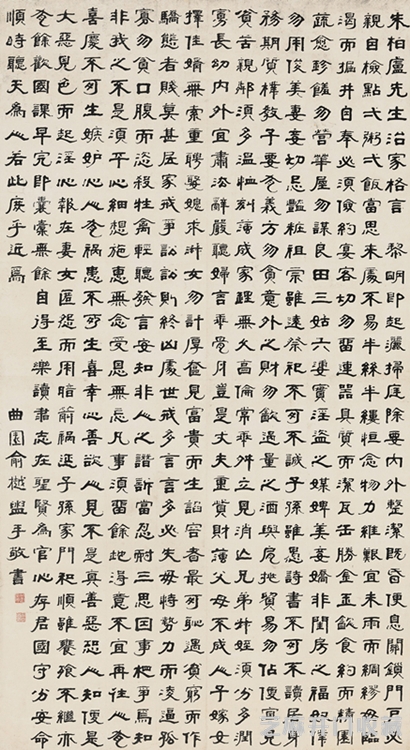 朱柏盧先生治家格言 黎明即起灑掃庭除要內外整潔既昏便息關鎖門戶必
親自檢點一粥一飯當思來處不易半絲半縷恒念物力維艱宜未雨而綢繆毋臨
渴而掘井自奉必須儉約宴客切勿留連器具質而潔瓦缶勝金玉飲食約而精園
蔬愈珍饈勿營華屋勿謀良田三姑六婆實淫盜之媒婢美妾嬌非閨房之福奴僕
勿用俊美妻妾切忌豔粧祖宗雖遠祭祀不可不誠子孫雖愚詩書不可不讀居身
務期質樸教子要有義方勿貪意外之財勿飲過量之酒與肩挑貿易勿佔便宜見
貧苦親鄰須多溫恤刻薄成家理無久享倫常乖舛立見消亡兄弟叔姪須分多潤
寡長幼內外宜肅法辭嚴聽婦言乖骨肉豈是丈夫重貲財薄父母不成人子嫁女
擇佳婿無索重聘娶媳求淑女勿計厚奩見富貴而生諂容者最可恥遇貧窮而作
驕態者賤莫甚居家戒爭訟訟則終凶處世戒多言言多必失毋恃勢力而凌逼孤
寡勿貪口腹而恣殺牲禽輕聽發言安知非人之譖訴當忍耐三思因事相爭焉知
非我之不是須平心細想施惠無念受恩無忘凡事須留餘地得意不宜再往人有
喜慶不可生嫉妒心人有禍患不可生喜幸心善欲人見不是真善惡恐人知便是
大惡見色而起淫心報在妻女匿怨而用暗箭禍延子孫家門和順雖饔飧不繼亦
有餘歡國課早完即囊橐無餘自得至樂讀書志在聖賢為官心存君國守分安命
順時聽天為人若此庶乎近焉
曲園俞樾盥手敬書